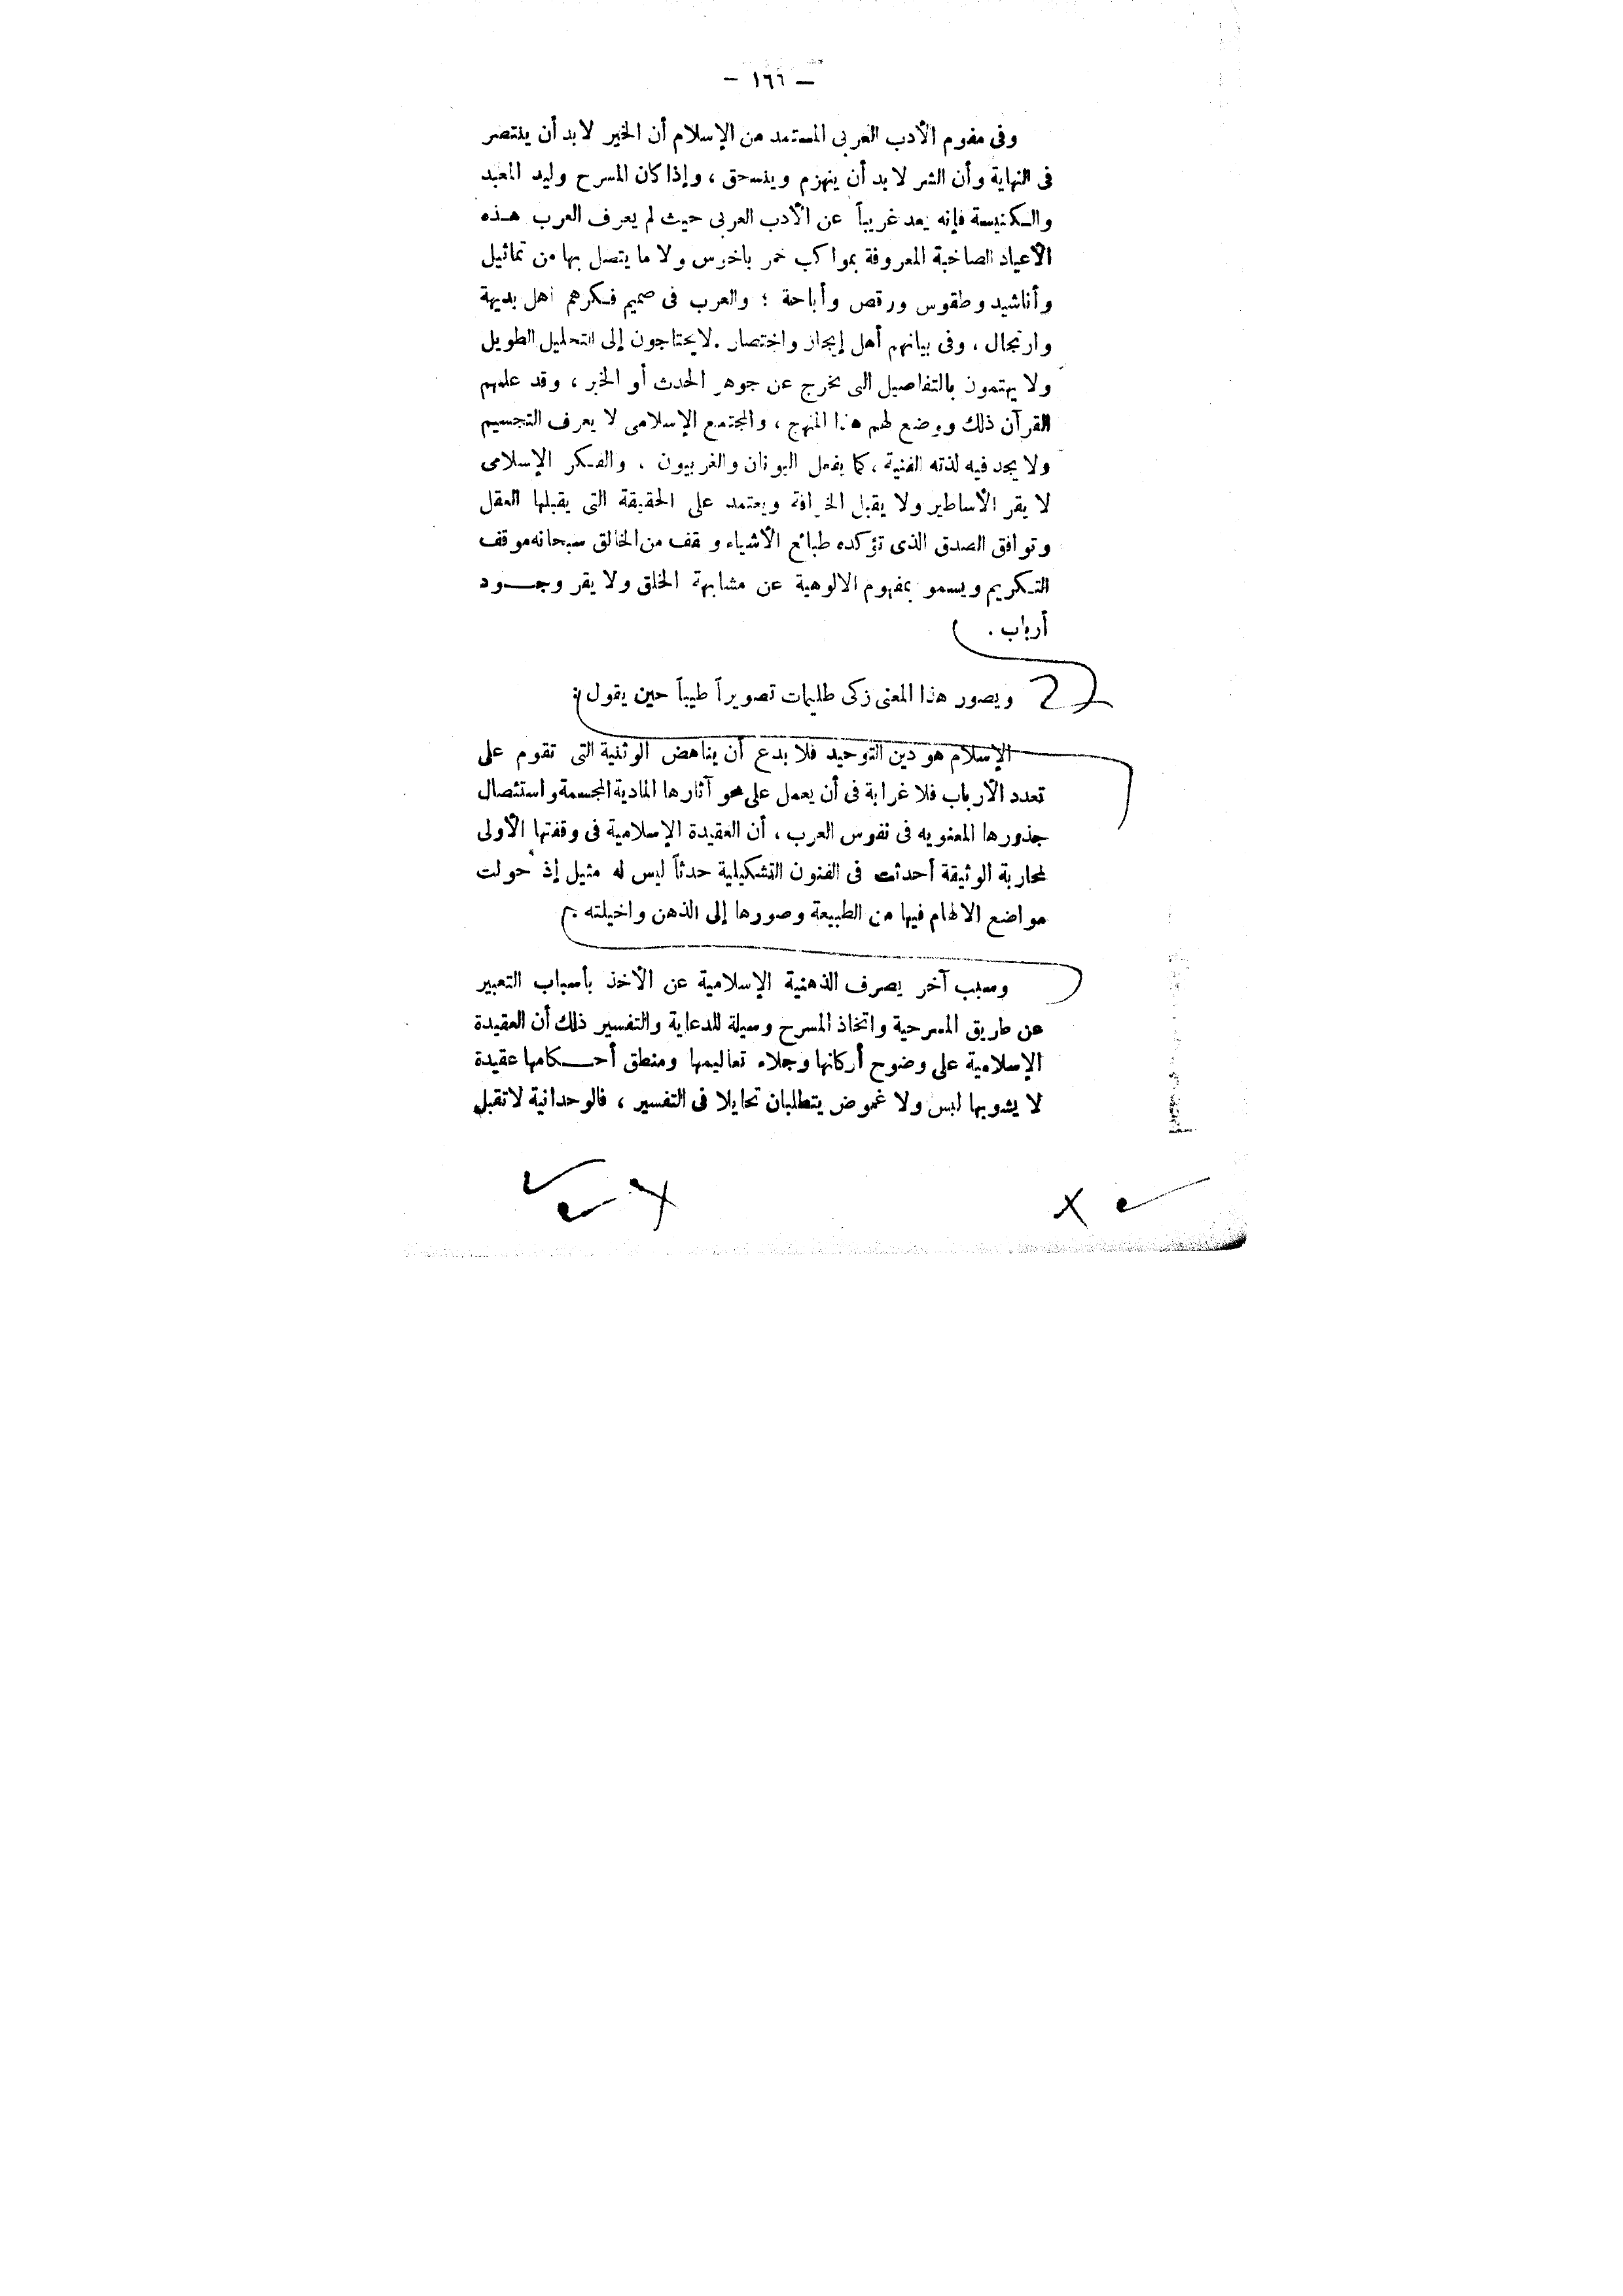 — ١٦٦ —
وفى مفوم الأدب العربى المستمد من الإسلام أن الخير لابد أن ينتصر
فى النهاية وأن الشر لابد أن ينهزم وينسحق ، وإذا كان المسرح وليد المعبد
والكنيسة فإنه يعد غريباً عن الأدب العربى حيث لم يعرف العرب هذه
الأعياد الصاخبة المعروفة بمواكب خمر باخوس ولا ما يتصل بها من تماثيل
وأناشيد وطقوس ورقص وأباحة ؛ والعرب فى صميم فكرهم أهل بديهة
وارتجال ، وفى بيانهم أهل إيجاز واختصار . لايحتاجون إلى التحليل الطويل
ولا يهتمون بالتفاصيل التى تخرج عن جوهر الحدث أو الخبر ، وقد علمهم
القرآن ذلك ووضع لهم هذا المنهج ، والمجتمع الإسلامى لا يعرف التجسيم
ولا يجد فيه لذته الفنية ، كما يفعل اليونان والغربيون . والفكر الإسلامى
لا يقر الأساطير ولا يقبل الخرافة ويعتمد على الحقيقة التى يقبلها العقل
وتوافق الصدق الذى تؤكده طبائع الأشياء و قف من الخالق سبحانه موقف
التكريم ويسمو بمفهوم الالوهية عن مشابهة الخلق ولا يقر وجود
أرباب .
ويصور هذا المعنى زكى طليمات تصويراً طيباً حين يقول :
الإسلام هو دين التوحيد فلا بدع أن يناهض الوثنية التى تقوم على
تعدد الأرباب فلا غرابة فى أن يعمل على محو آثارها المادية المجسمة واستئصال
جذورها المعنويه فى نفوس العرب ، أن العقيدة الإسلامية فى وقفتها الأولى
لمحاربة الوثيقة أحدثت فى الفنون التشكيلية حدثاً ليس له مثيل إذ حولت
مواضع الالهام فيها من الطبيعة وصورها إلى الذهن واخيلته .
وسبب آخر يصرف الذهنية الإسلامية عن الأخذ بأسباب التعبير
عن طريق المسرحية واتخاذ المسرح وسيلة للدعاية والتفسير ذلك أن العقيدة
الإسلامية على وضوح أركانها وجلاء تعاليمها ومنطق أحكامها عقيدة
لا يشوبها لبس ولا غموض يتطلبان تحايلا فى التفسير ، فالوحدانية لاتقبل